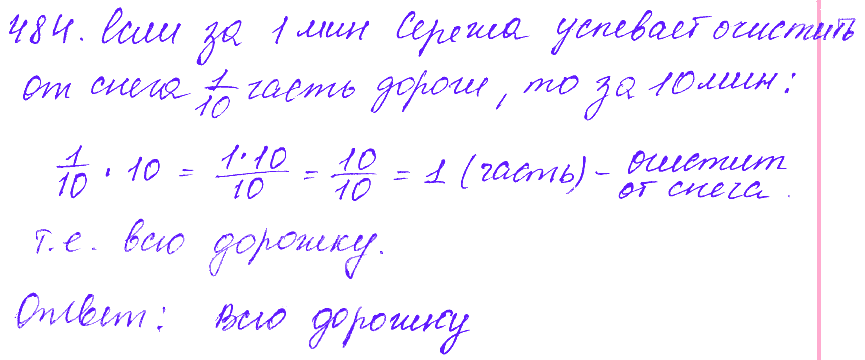 484. Если за 1 мин Сережа успевает очистить
от снега 1/10 часть дороги, то за 10 мин:
1/10 · 10 = 1·10/10 = 10/10 = 1 (часть) - очистит от снега.
т.е. всю дорожку.
Ответ: всю дорожку